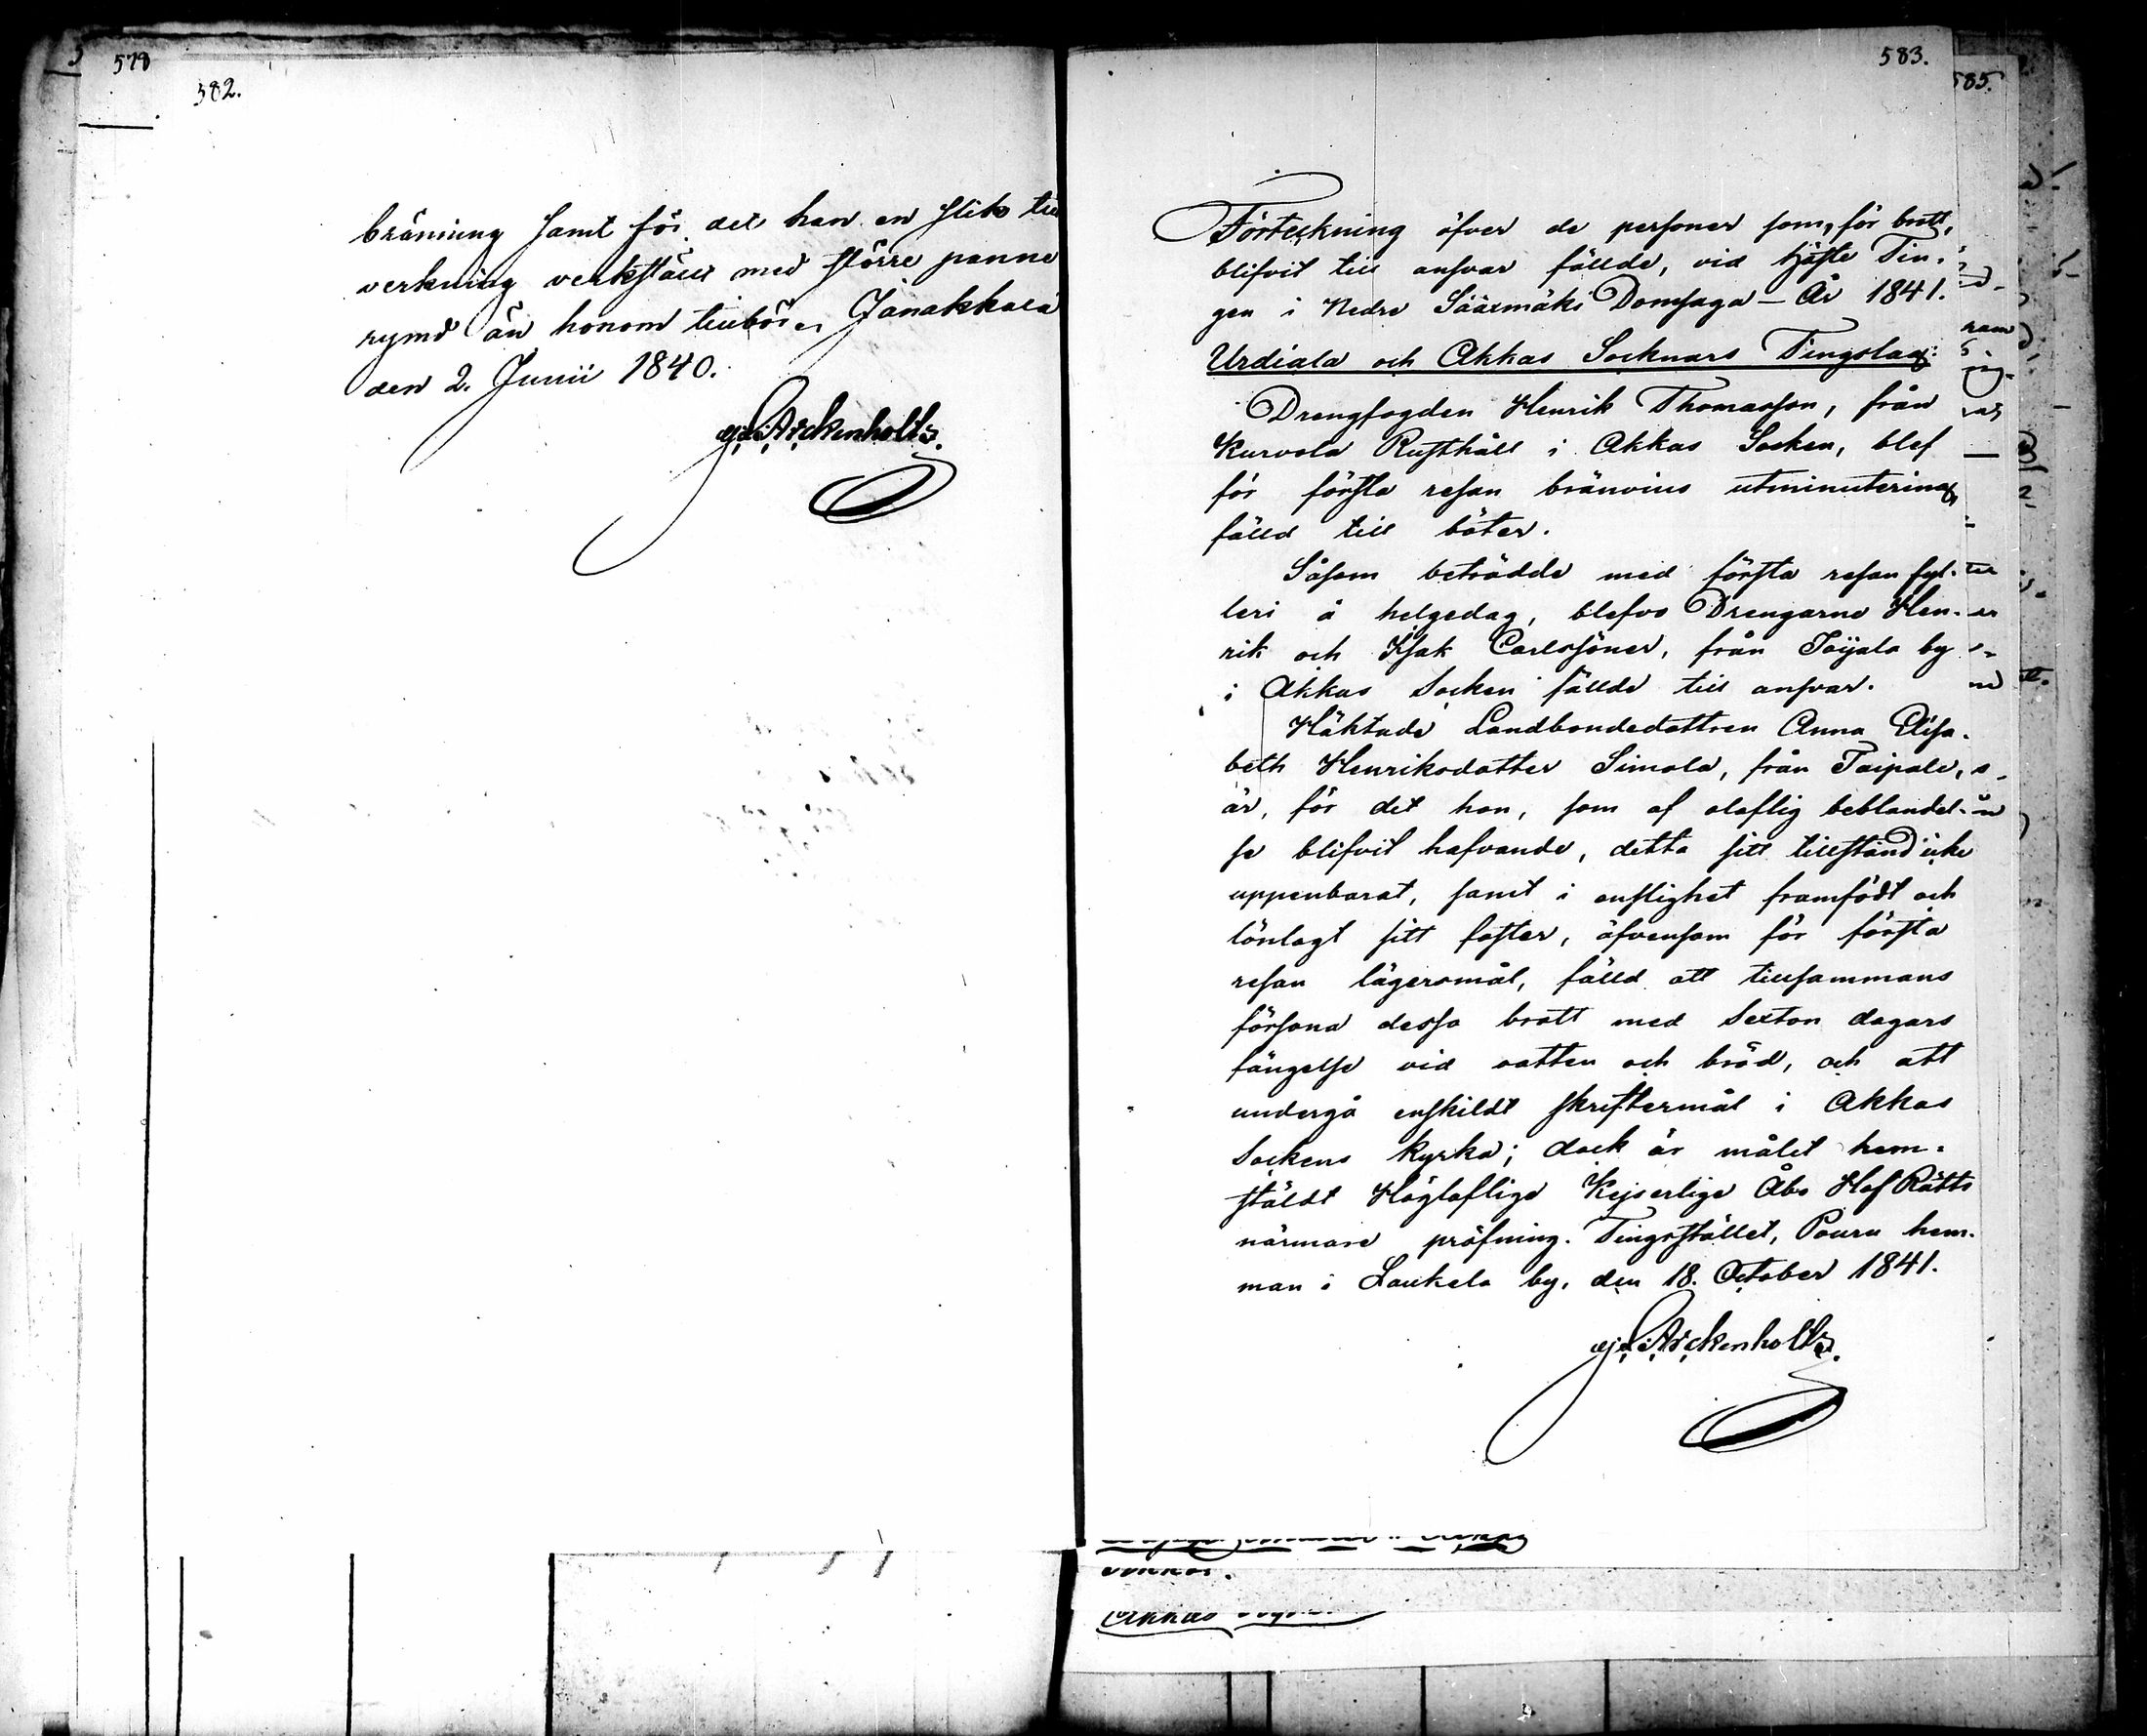 578
582.
bränning samt för det han en slik till
verkning verkstält med större panne
rymd än honom tillbör. Janakkala
den 2. Junii 1840.
Arckenholtz.
583.
585.
Förteckning öfver de personer som, för brott,
blifvit till ansvar fällde, vid höste Tin-
gen i Nedre Sääxmäki Domsaga – År 1841.
Urdiala och Akkas Socknars Tingslag.
Drengfogden Henrik Thomasson, från
Kurvola Rusthåll i Akkas Socken, blef
för första resan bränvins utminutering
fälld till böter.
Såsom beträdde med första resan fyl-
leri å helgedag, blefvo Drengarne Hen-
rik och Isak Carlssöner, från Toijala by
i Akkas Socken fällde till ansvar.
Häktade Landbondedottren Anna Elisa-
beth Henriksdotter Simola, från Taipale,
är, för det hon, som af oloflig beblandel-
se blifvit hafvande, detta sitt tillstånd icke
uppenbarat, samt i enslighet framfödt och
lönlagt sitt foster, äfvensom för första
resan lägersmål, fälld att tillsammans
försona dessa brott med Sexton dagars
fängelse vid vatten och bröd, och att
undergå enskildt skriftermål i Akkas
Sockens kyrka; dock är målet hem-
stäldt Högloflige Kejserlige Åbo HofRätts
närmare pröfning. Tingsstället, Pouru hem-
man i Laukela by, den 18. October 1841.
Arckenholtz.
Akkas